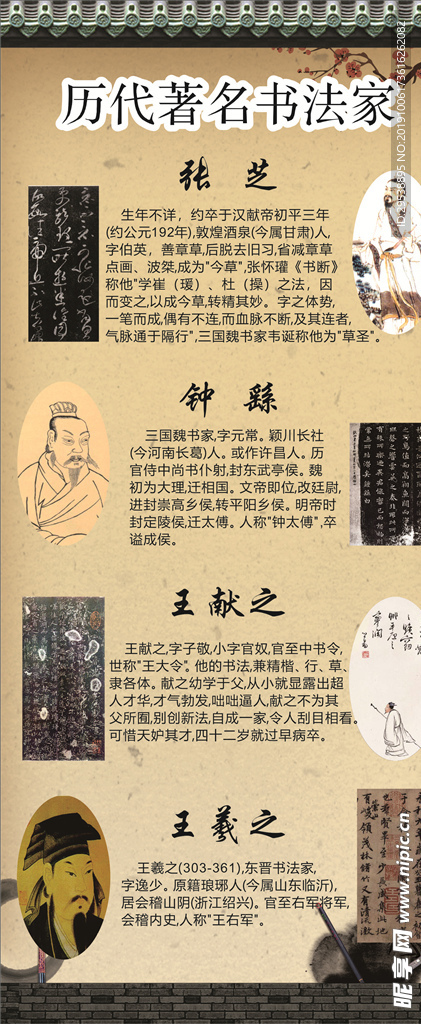 历代著名书法家
张芝
生年不详，约卒于汉献帝初平三年
(约公元192年),敦煌酒泉(今属甘肃)人,
字伯英，善章草,后脱去旧习,省减章草
点画、波桀,成为"今草",张怀瓘《书断》
称他"学崔（瑗）、杜（操）之法，因
而变之,以成今草,转精其妙。字之体势,
一笔而成,偶有不连,而血脉不断,及其连者,
气脉通于隔行",三国魏书家韦诞称他为"草圣"。
钟繇
三国魏书家,字元常。颍川长社
(今河南长葛)人。或作许昌人。历
官侍中尚书仆射,封东武亭侯。魏
初为大理,迁相国。文帝即位,改廷尉,
进封崇高乡侯,转平阳乡侯。明帝时
封定陵侯,迁太傅。人称"钟太傅",卒
谥成侯。
王献之
王献之,字子敬,小字官奴,官至中书令,
世称"王大令"。他的书法,兼精楷、行、草、
隶各体。献之幼学于父,从小就显露出超
人才华,才气勃发,咄咄逼人,献之不为其
父所囿,别创新法,自成一家,令人刮目相看。
可惜天妒其才,四十二岁就过早病卒。
王羲之
王羲之(303-361),东晋书法家,
字逸少。原籍琅琊人(今属山东临沂),
居会稽山阴(浙江绍兴)。官至右军将军,
会稽内史,人称"王右军"。
昵享网 www.nipic.cn